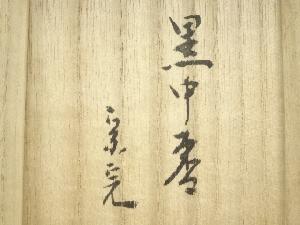 黒中棗
宗完